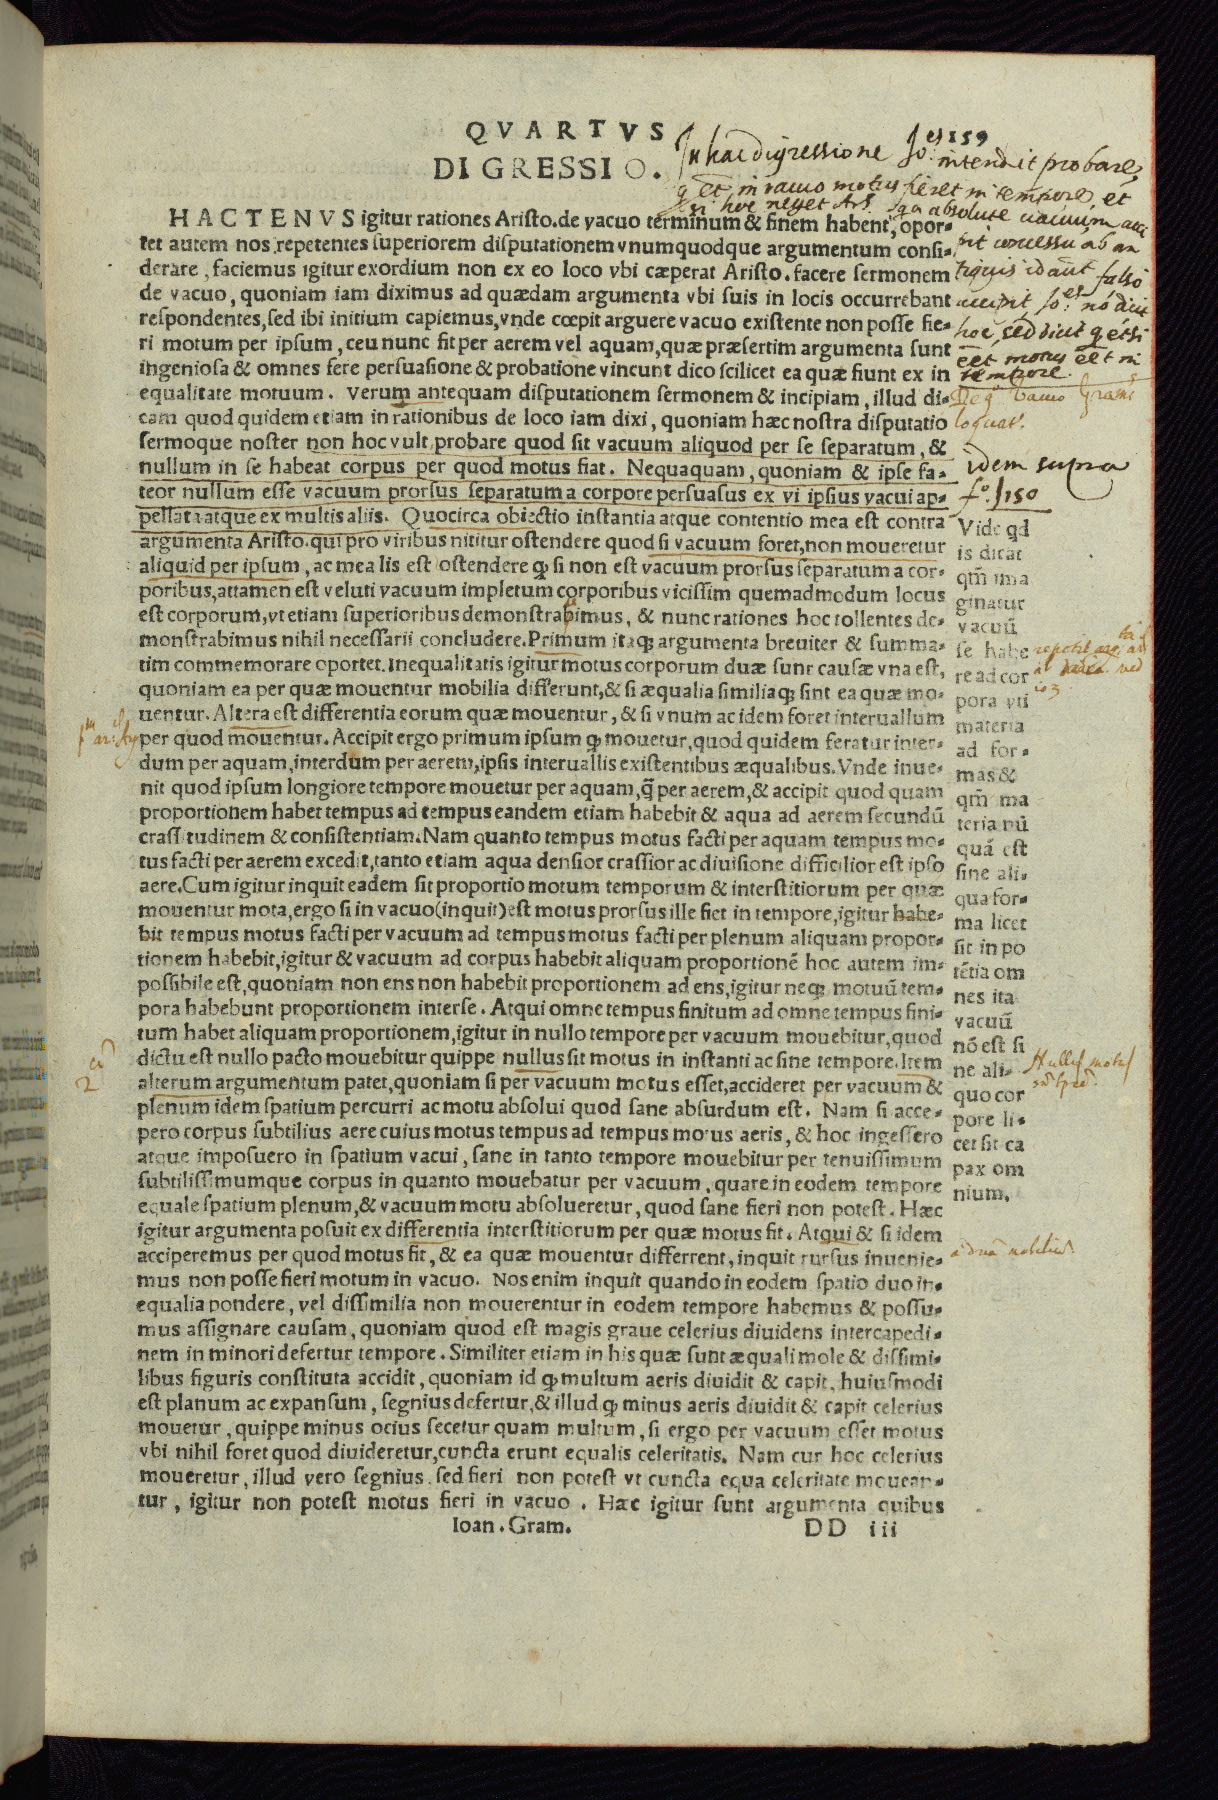 QVARTVS
159
DIGRESSIO.
In hac digressione Jo: intendit probare,
et in vacuo motus fieret in tempore, et
si hoc neget Ars absolute vacuum acci
tiquis id aut falso
accipit Jo:es nō dicit
hoc, sed dicit q etsi
eēt motus eēt in
tempore.
HACTENVS igitur rationes Aristo.de vacuo terminum & finem habent, opor-
tet autem nos repetentes superiorem disputationem vnumquodque argumentum consi-
derare, faciemus igitur exordium non ex eo loco vbi cæperat Aristo.facere sermonem
de vacuo, quoniam iam diximus ad quædam argumenta vbi suis in locis occurrebant
respondentes, sed ibi initium capiemus, vnde cœpit arguere vacuo existente non posse fie-
ri motum per ipsum, ceu nunc fit per aerem vel aquam, quæ præsertim argumenta sunt
ingeniosa & omnes fere persuasione & probatione vincunt dico scilicet ea quæ fiunt ex in
equalitate motuum. Verum antequam disputationem sermonem & incipiam, illud di-
cam quod quidem etiam in rationibus de loco iam dixi, quoniam hæc nostra disputatio
sermoque noster non hoc vult probare quod sit vacuum aliquod per se separatum, &
nullum in se habeat corpus per quod motus fiat. Nequaquam, quoniam & ipse fa-
teor nullum esse vacuum prorsus separatum a corpore persuasus ex vi ipsius vacui ap-
pellata atque ex multis aliis. Quocirca obiectio instantia atque contentio mea est contra
argumenta Aristo.qui pro viribus nititur ostendere quod si vacuum foret, non moueretur
aliquid per ipsum, ac mea lis est ostendere ꝙ si non est vacuum prorsus separatum a cor-
poribus, attamen est veluti vacuum impletum corporibus vicissim quemadmodum locus
est corporum, vt etiam superioribus demonstrabimus, & nunc rationes hoc tollentes de-
monstrabimus nihil necessarii concludere. Primum itaqꝫ argumenta breuiter & summa-
tim commemorare oportet. Inequalitatis igitur motus corporum duæ sunt causæ vna est,
quoniam ea per quæ mouentur mobilia differunt, & si æqualia similiaqꝫ sint ea quæ mo-
uentur. Altera est differentia eorum quæ mouentur, & si vnum ac idem foret interuallum
per quod mouentur. Accipit ergo primum ipsum ꝙ mouetur, quod quidem feratur inter-
dum per aquam, interdum per aerem, ipsis interuallis existentibus æqualibus. Vnde inue-
nit quod ipsum longiore tempore mouetur per aquam, q̃ per aerem, & accipit quod quam
proportionem habet tempus ad tempus eandem etiam habebit & aqua ad aerem secundū
crassitudinem & consistentiam. Nam quanto tempus motus facti per aquam tempus mo-
tus facti per aerem excedit, tanto etiam aqua densior crassior ac diuisione difficilior est ipso
aere. Cum igitur inquit eadem sit proportio motum temporum & interstitiorum per quæ
mouentur mota, ergo si in vacuo (inquit) est motus prorsus ille fiet in tempore, igitur habe-
bit tempus motus facti per vacuum ad tempus motus facti per plenum aliquam propor-
tionem habebit, igitur & vacuum ad corpus habebit aliquam proportionē hoc autem im-
possibile est, quoniam non ens non habebit proportionem ad ens, igitur neqꝫ motuū tem-
pora habebunt proportionem inter se. Atqui omne tempus finitum ad omne tempus fini-
tum habet aliquam proportionem, igitur in nullo tempore per vacuum mouebitur, quod
dictu est nullo pacto mouebitur quippe nullus sit motus in instanti ac sine tempore. Item
alterum argumentum patet, quoniam si per vacuum motus esset, accideret per vacuum &
plenum idem spatium percurri ac motu absolui quod sane absurdum est. Nam si acce-
pero corpus subtilius aere cuius motus tempus ad tempus motus aeris, & hoc ingessero
atque imposuero in spatium vacui, sane in tanto tempore mouebitur per tenuissimum
subtilissimumque corpus in quanto mouebatur per vacuum, quare in eodem tempore
equale spatium plenum, & vacuum motu absolueretur, quod sane fieri non potest. Hæc
igitur argumenta posuit ex differentia interstitiorum per quæ motus fit. Atqui & si idem
acciperemus per quod motus fit, & ea quæ mouentur differrent, inquit rursus inuenie-
mus non posse fieri motum in vacuo. Nos enim inquit quando in eodem spatio duo in-
equalia pondere, vel dissimilia non mouerentur in eodem tempore habemus & possu-
mus assignare causam, quoniam quod est magis graue celerius diuidens intercapedi-
nem in minori defertur tempore. Similiter etiam in his quæ sunt æquali mole & dissimi-
libus figuris constituta accidit, quoniam id ꝙ multum aeris diuidit & capit, huiusmodi
est planum ac expansum, segnius defertur, & illud ꝙ minus aeris diuidit & capit celerius
mouetur, quippe minus ocius secetur quam multum, si ergo per vacuum esset motus
vbi nihil foret quod diuideretur, cuncta erunt equalis celeritatis. Nam cur hoc celerius
moueretur, illud vero segnius. sed fieri non potest vt cuncta equa celeritate mouean-
tur, igitur non potest motus fieri in vacuo. Hæc igitur sunt argumenta quibus
Ioan. Gram.
DD iii
loquat'.
idem supra
f.º 150
Vide qd
is dicat
qm̃ ima
ginatur
vacuū
se habe
re ad cor
pora vti
materia
ad for-
mas &
qm̃ ma
teria nū
quā est
sine ali-
qua for-
ma licet
sit in po
tētia om
nes ita
vacuū
nō est si
ne ali-
quo cor
pore li-
cet sit ca
pax om
nium.
Nullus motus
2